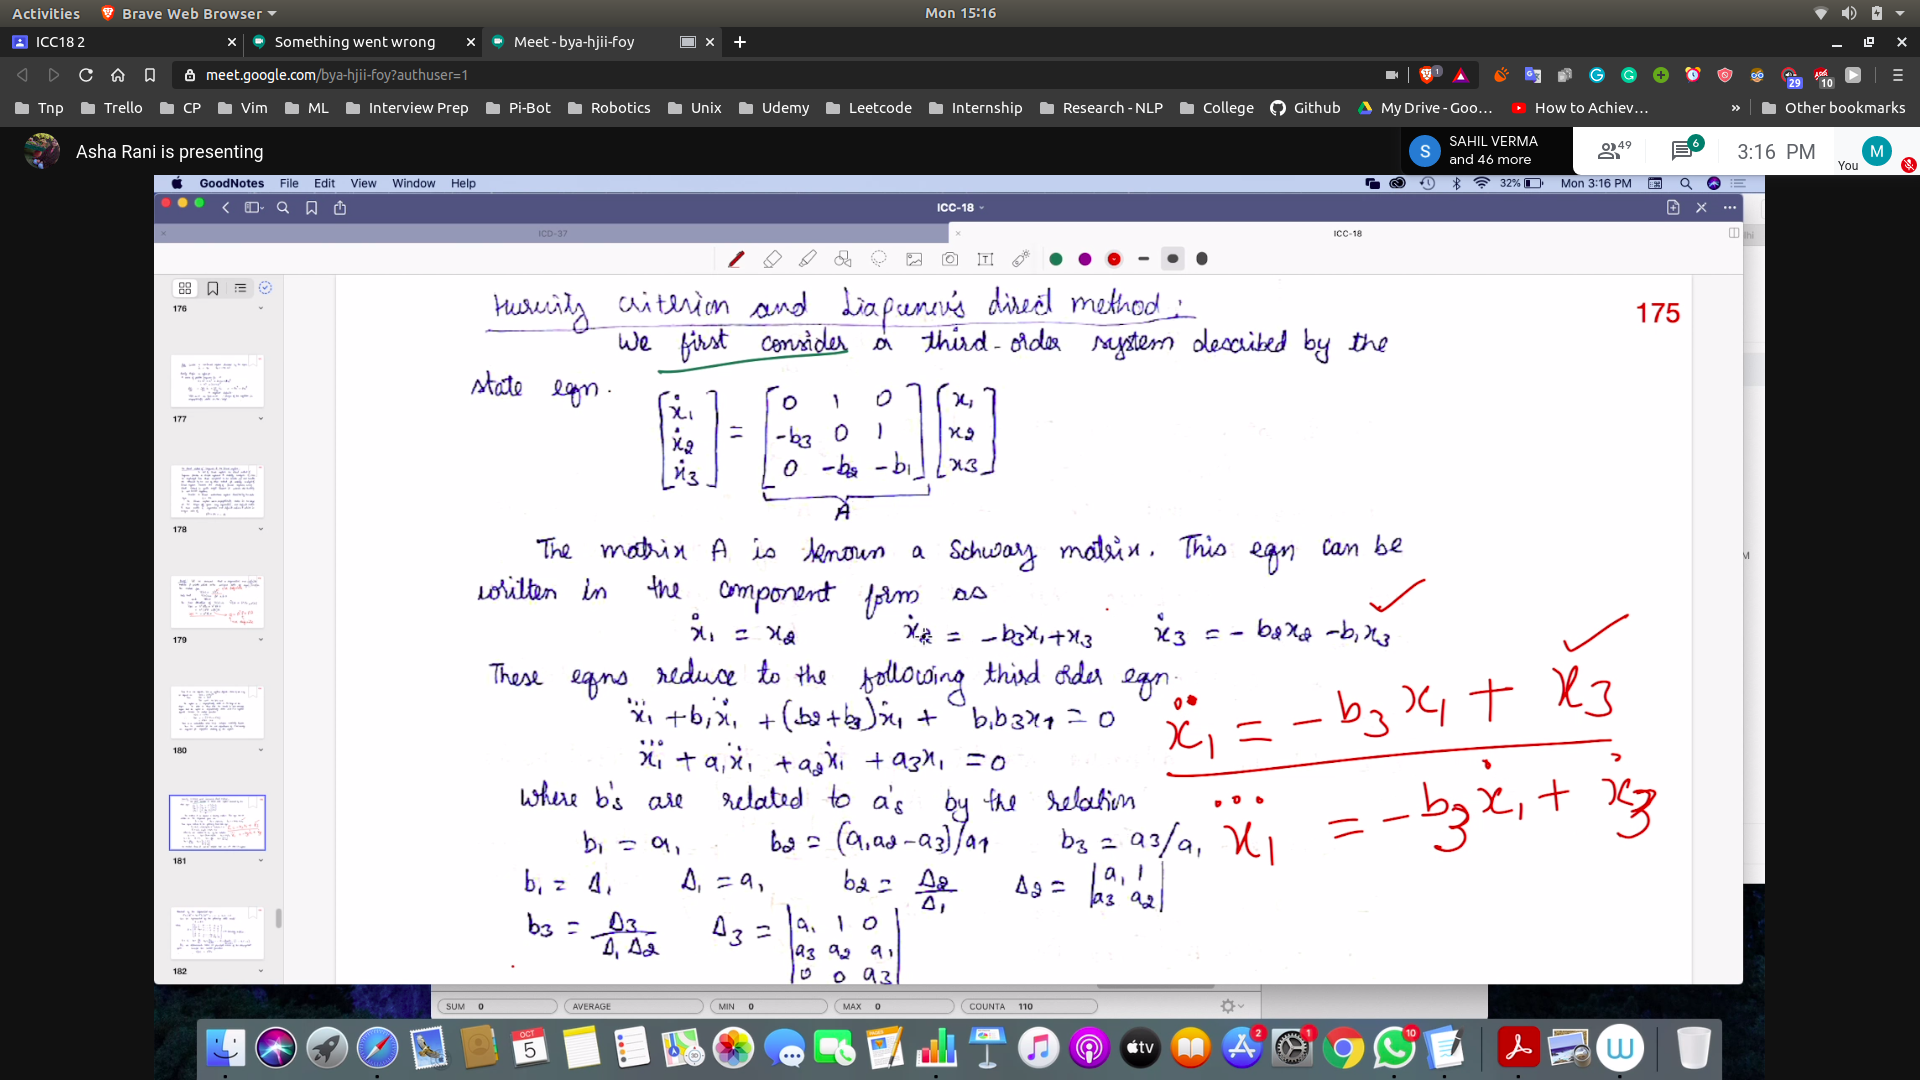 Activities Brave Web Browser Mon 15:16
ICC18 2 Something went wrong Meet - bya-hjii-foy
meet.google.com/bya-hjii-foy?authuser=1 1 29 10
Tnp Trello CP Vim ML Interview Prep Pi-Bot Robotics Unix Udemy Leetcode Internship Research - NLP College Github My Drive - Goo... How to Achiev... » Other bookmarks
Asha Rani is presenting S SAHIL VERMA and 46 more 49 6 3:16 PM You M
GoodNotes File Edit View Window Help 32% Mon 3:16 PM
ICC-18
ICD-37 ICC-18
175
criterion and Liapunov's direct method :
We first consider a third-order system described by the
state eqn.
[ẋ1 ẋ2 ẋ3] = [0 1 0; -b3 0 1; 0 -b2 -b1] [x1 x2 x3]
A
The matrix A is known a Schwarz matrix. This eqn can be
written in the component form as
ẋ1 = x2 ẋ2 = -b3x1+x3 ẋ3 = - b2x2 -b1x3
These eqns reduce to the following third order eqn.
x⃛1 + b1ẍ1 + (b2+b3)ẋ1 + b1b3x1 = 0
x⃛1 + a1ẍ1 + a2ẋ1 + a3x1 = 0
Where b's are related to a's by the relation
b1 = a1 b2 = (a1a2-a3)/a1 b3 = a3/a1
b1 = Δ1 Δ1 = a1 b2 = Δ2/Δ1 Δ2 = |a1 1; a3 a2|
b3 = Δ3/Δ1Δ2 Δ3 = |a1 1 0; a3 a2 a1; 0 0 a3|
ẍ1 = -b3x1 + x3
x⃛1 = -b3ẋ1 + ẋ3
176
177
178
179
180
181
182
SUM 0 AVERAGE MIN 0 MAX 0 COUNTA 110
OCT 5 tv 2 1 10